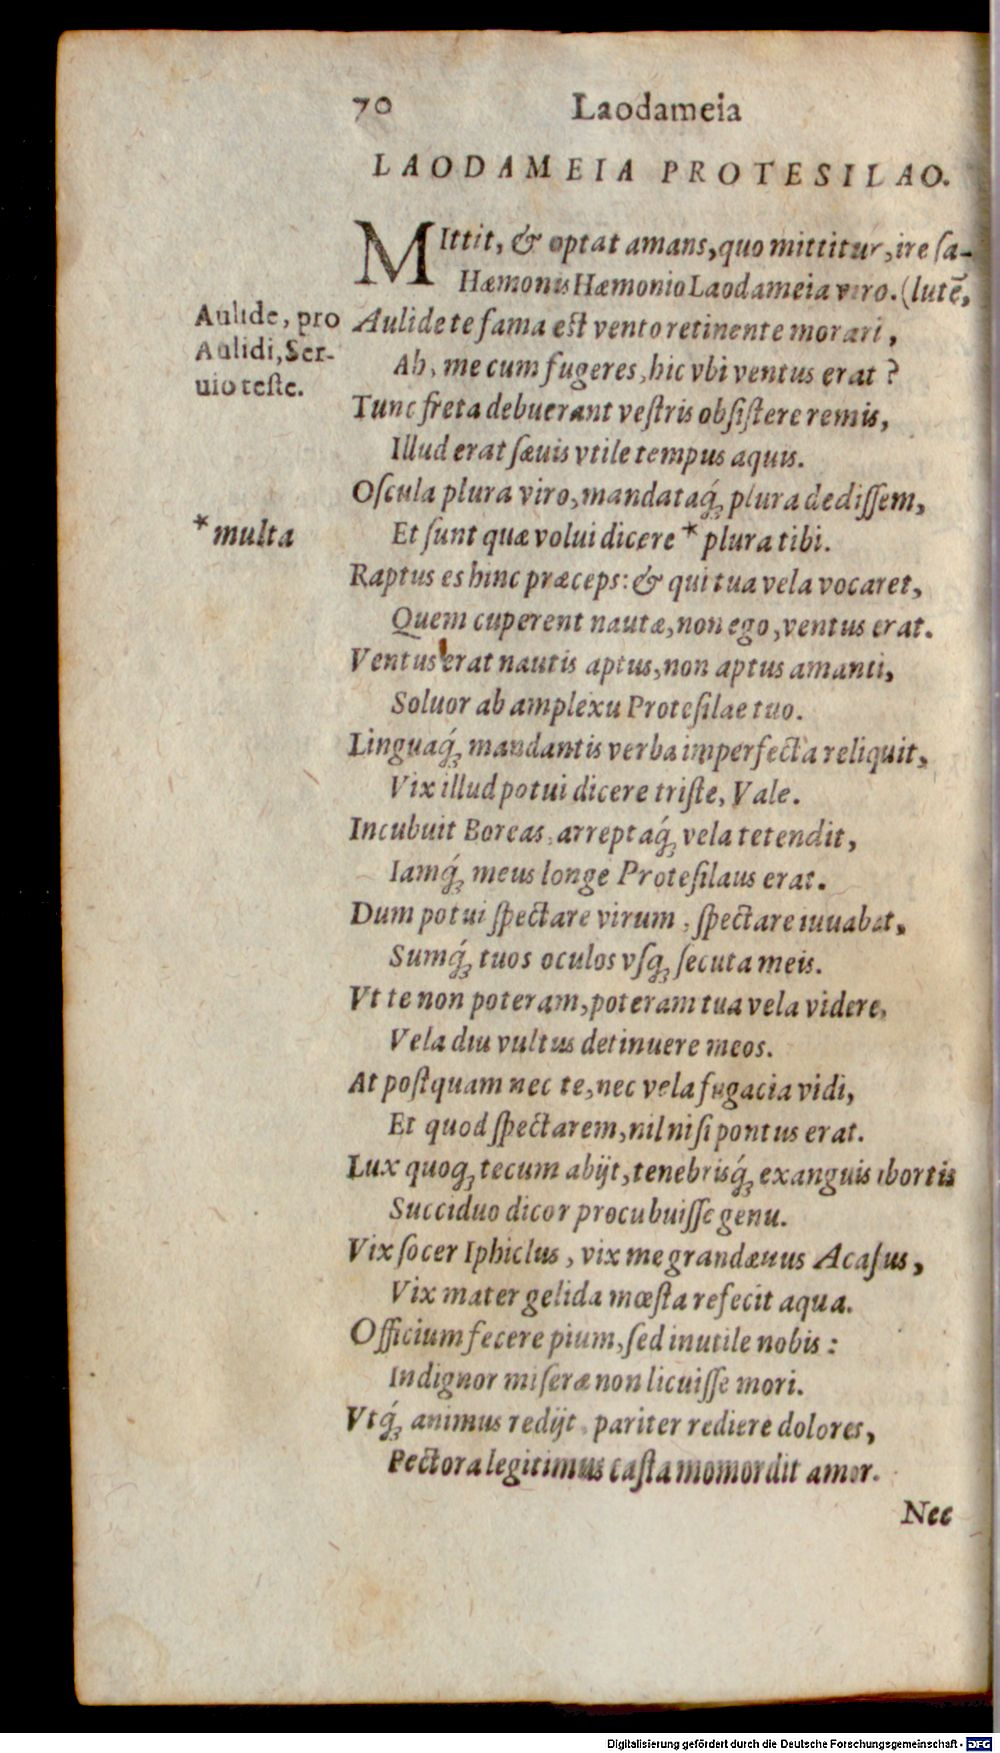 70 Laodameia
LAODAMEIA PROTESILAO.
MIttit, & optat amans, quo mittitur, ire ſa-
Hæmonis Hæmonio Laodameia viro. (lutē,
Aulide te fama eſt vento retinente morari,
Ah, me cum fugeres, hic vbi ventus erat?
Tunc freta debuerant veſtris obſiſtere remis,
Illud erat ſæuis vtile tempus aquis.
Oſcula plura viro, mandataq́ꝫ plura dediſſem,
Et ſunt quæ volui dicere * plura tibi.
Raptus es hinc præceps: & qui tua vela vocaret,
Quem cuperent nautæ, non ego, ventus erat.
Ventus erat nautis aptus, non aptus amanti,
Soluor ab amplexu Proteſilae tuo.
Linguaq́ꝫ mandantis verba imperfecta reliquit,
Vix illud potui dicere triſte, Vale.
Incubuit Boreas, arreptaq́ꝫ vela tetendit,
Iamq́ꝫ meus longe Proteſilaus erat.
Dum potui ſpectare virum, ſpectare iuuabat,
Sumq́ꝫ tuos oculos vſqꝫ ſecuta meis.
Vt te non poteram, poteram tua vela videre,
Vela diu vultus detinuere meos.
At poſtquam nec te, nec vela fugacia vidi,
Et quod ſpectarem, nil niſi pontus erat.
Lux quoqꝫ tecum abijt, tenebrisq́ꝫ exanguis obortis
Succiduo dicor procubuiſſe genu.
Vix ſocer Iphiclus, vix me grandæuus Acaſus,
Vix mater gelida mœſta refecit aqua.
Officium fecere pium, ſed inutile nobis:
Indignor miſeræ non licuiſſe mori.
Vtq́ꝫ animus redijt, pariter rediere dolores,
Pectora legitimus caſta momordit amor.
Nec
Aulide, pro
Aulidi, Ser-
uio teſte.
* multa
Digitalisierung gefördert durch die Deutsche Forschungsgemeinschaft - DFG